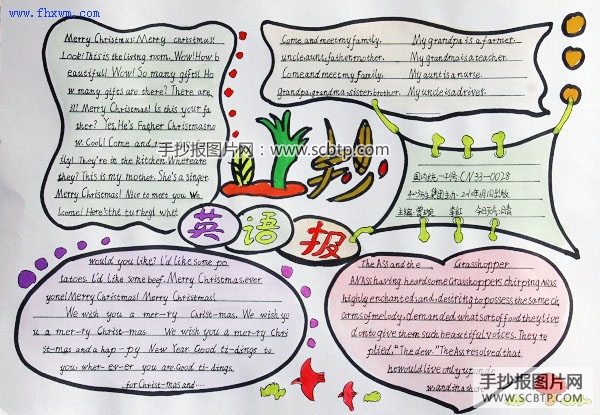 www.fhxwm.com
Merry Christmas! Merry christmas!
Look! This is the living room. Wow! How b
eautiful! Wow! So many gifts! Ho
w many gifts are there? There are
!!! Merry Christmas! Is this your fa
ther? Yes, He's Father Christmas no
w. Cool! Come and
lly! They're in the kitchen. Where are
they? This is my mother. She's a singer
Merry Christmas! Nice to meet you We
lcome! Here's the turkey! whit
Come and meet my family. My grandpa is a farmer.
uncle aunt father mother. My grandma is a teacher.
Come and meet my family. My aunt is a nurse.
grandpa grandma sister brother. My uncle is a driver.
手抄报图片网：www.scbtp.com
国内统一刊号:CN33-0028
主编:
英语报
would you like? I'd like some po
tatoes. I'd like some beef. Merry Christmas, ever
yone! Merry Christmas! Merry Christmas!
We wish you a mer-rry Christ-mas. We wish yo
u a mer-rry Christ-mas We wish you a mer-rry Chri
st-mas and a hap-py New Year. Good ti-dings to
you wher-ev-er you are. Good ti-dings.
for Christ-mas and....
The Ass and the Grasshopper
AN Ass having heard some Grasshoppers chirping, was
highly enchanted; and, desiring to possess the same ch
arms of melody, demanded what sort of food they live
d on to give them such beautiful voices. They re
plied, "The dew." The Ass resolved that
he would live only upon de
w and in a sho
手抄报图片网
WWW.SCBTP.COM